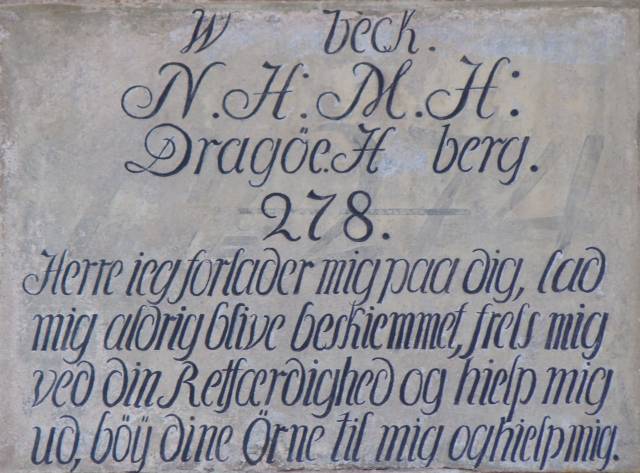 W beck.
N.H:M.H:
Dragöe.H berg.
278.
Herre ieg forlader mig paa dig, lad
mig aldrig blive beskiemmet, frels mig
ved din Retfærdighed og hielp mig
ud, böÿ dine Örne til mig og hielp mig.